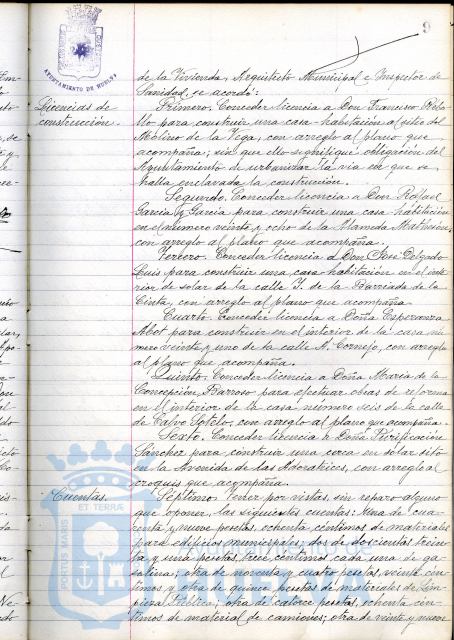 9
AYUNTAMIENTO DE HUELVA
de la Vivienda, Arquitecto Municipal e Inspector de
Sanidad, se acordó:
Licencias de
construcción.
Primero. Conceder licencia a Don Francisco
para construir una casa-habitación al sitio del
Molino de la Vega, con arreglo al plano que
acompaña; sin que ello signifique obligación del
Ayuntamiento de urbanizar la vía en que se
halla enclavada la construcción.
Segundo. Conceder licencia a Don Rafael
García y García para construir una casa habitación
en el número veinte y ocho de la Alameda
con arreglo al plano que acompaña.
Tercero. Conceder licencia a Don José Delgado
Luis para construir una casa habitación en el inte-
rior de solar de la calle J. de la Barriada de la
Cinta, con arreglo al plano que acompaña.
Cuarto. Conceder licencia a Doña Esperanza
Abot para construir en el interior de la casa nú-
mero veinte y uno de la calle A. Cornejo, con arreglo
al plano que acompaña.
Quinto. Conceder licencia a Doña María de la
Concepción Barroso para efectuar obras de reforma
en el interior de la casa número seis de la calle
de Calvo Sotelo, con arreglo al plano que acompaña.
Sexto. Conceder licencia a Doña Purificación
Sánchez para construir una cerca en solar sito
en la Avenida de las Adoratrices, con arreglo al
croquis que acompaña.
Cuentas.
Séptimo. Tener por vistas, sin reparo alguno
que oponer, las siguientes cuentas: Una de cua-
renta y nueve pesetas, ochenta céntimos de materiales
para edificios municipales; dos de doscientas trein-
ta y una pesetas, trece céntimos cada una de ga-
solina; otra de noventa y cuatro pesetas, veinte cén-
timos y otra de quince pesetas de materiales de Lim-
pieza Pública; otra de catorce pesetas, ochenta cén-
timos de material de camiones; otra de veinte y nueve
PORTUS MARIS ET TERRÆ